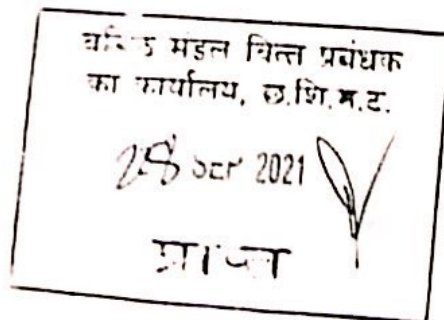 वरिष्ठ मंडल वित्त प्रबंधक
का कार्यालय, छ.शि.म.ट.
28 SEP 2021
प्राप्त